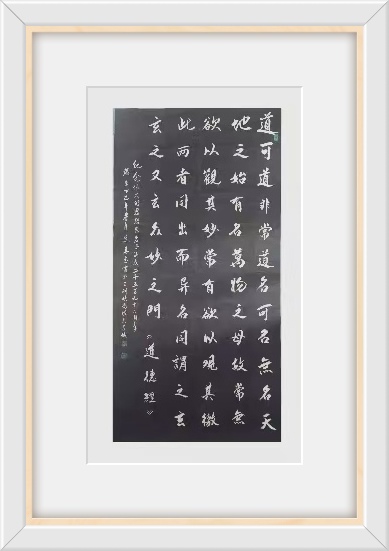 道可道非常道名可名無名天
地之始有名萬物之母故常無
欲以觀其妙常有欲以觀其徼
此两者同出而異名同謂之玄
玄之又玄眾妙之門《道德經》
紀念伟大的思想家老子